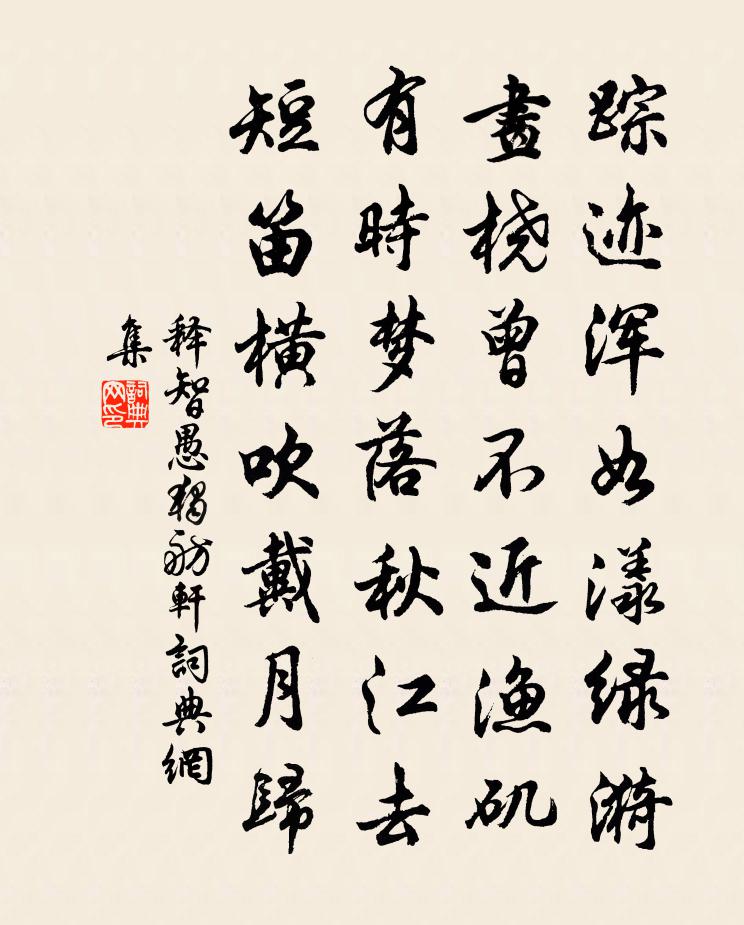 踪迹浑如漾绿漪
畫桡曾不近渔矶
有時梦落秋江去
短笛橫吹戴月歸
释智愚獨舫軒詞典網
集
詞典网印